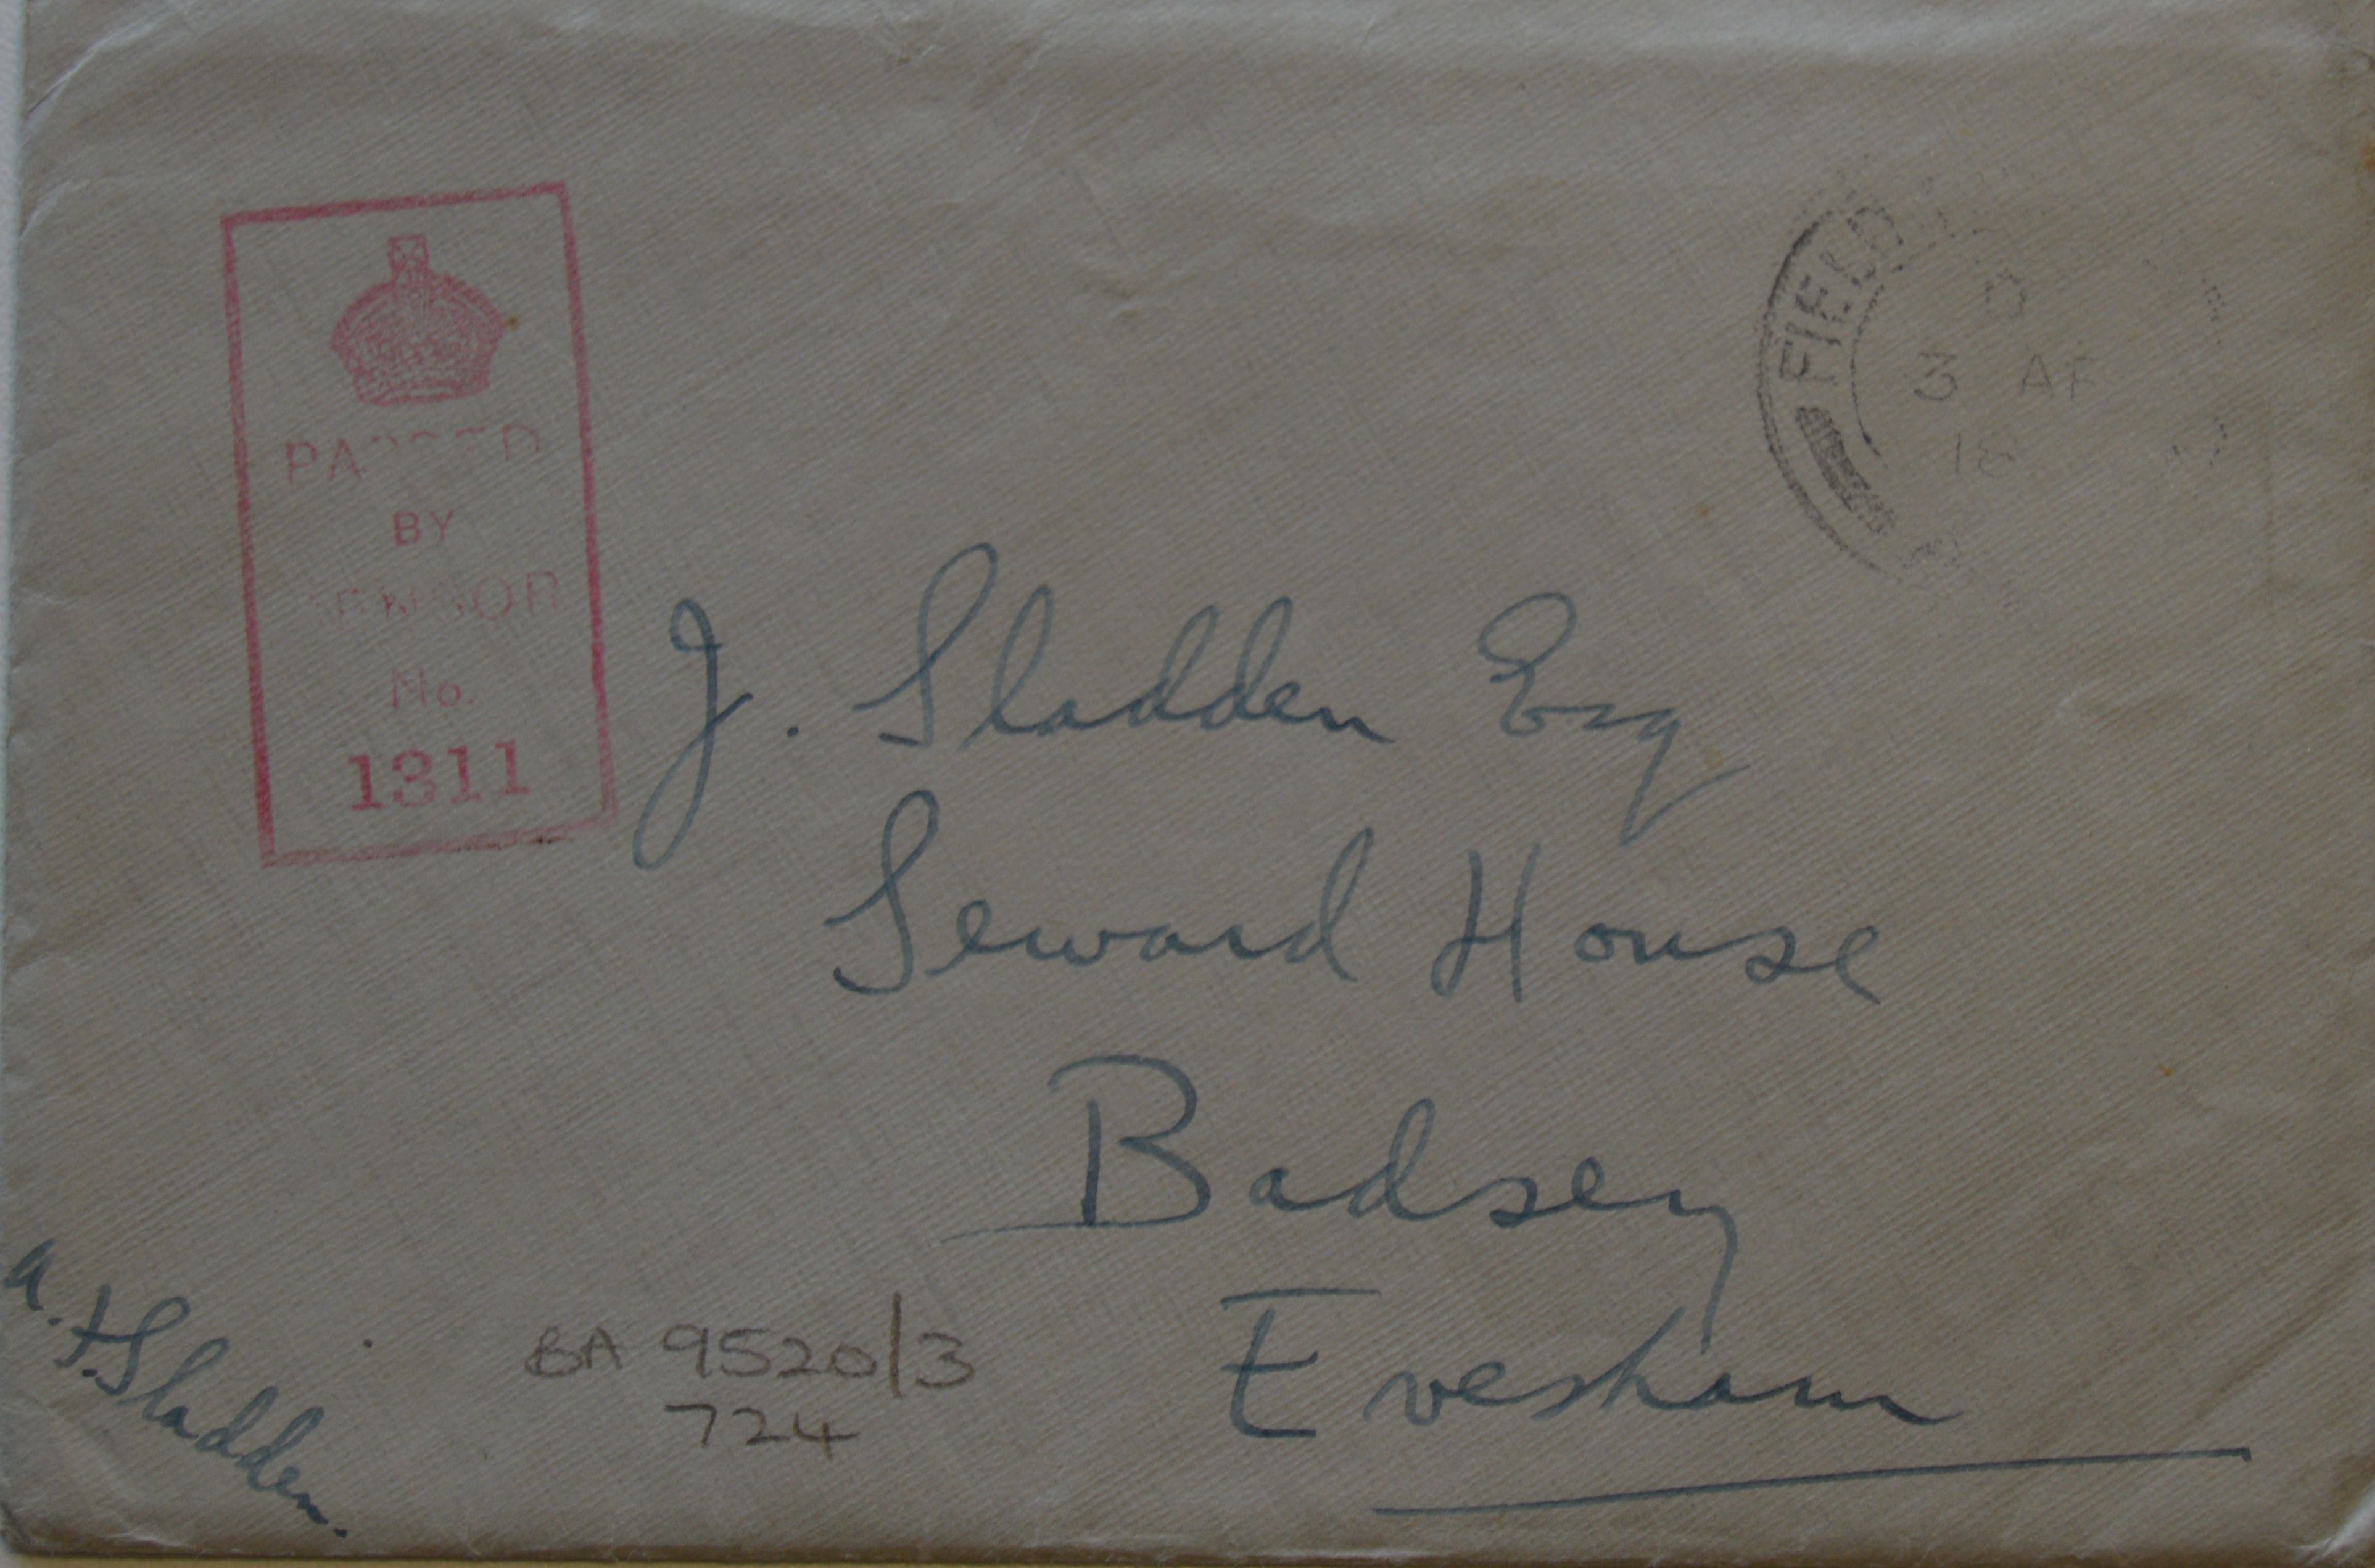 PASSED
BY
CENSOR
No.
1311
FIELD
D
3 AP
18
J. Sladden Esq
Seward House
Badsey
Evesham
A. F. Sladden.
BA 9520/3
724